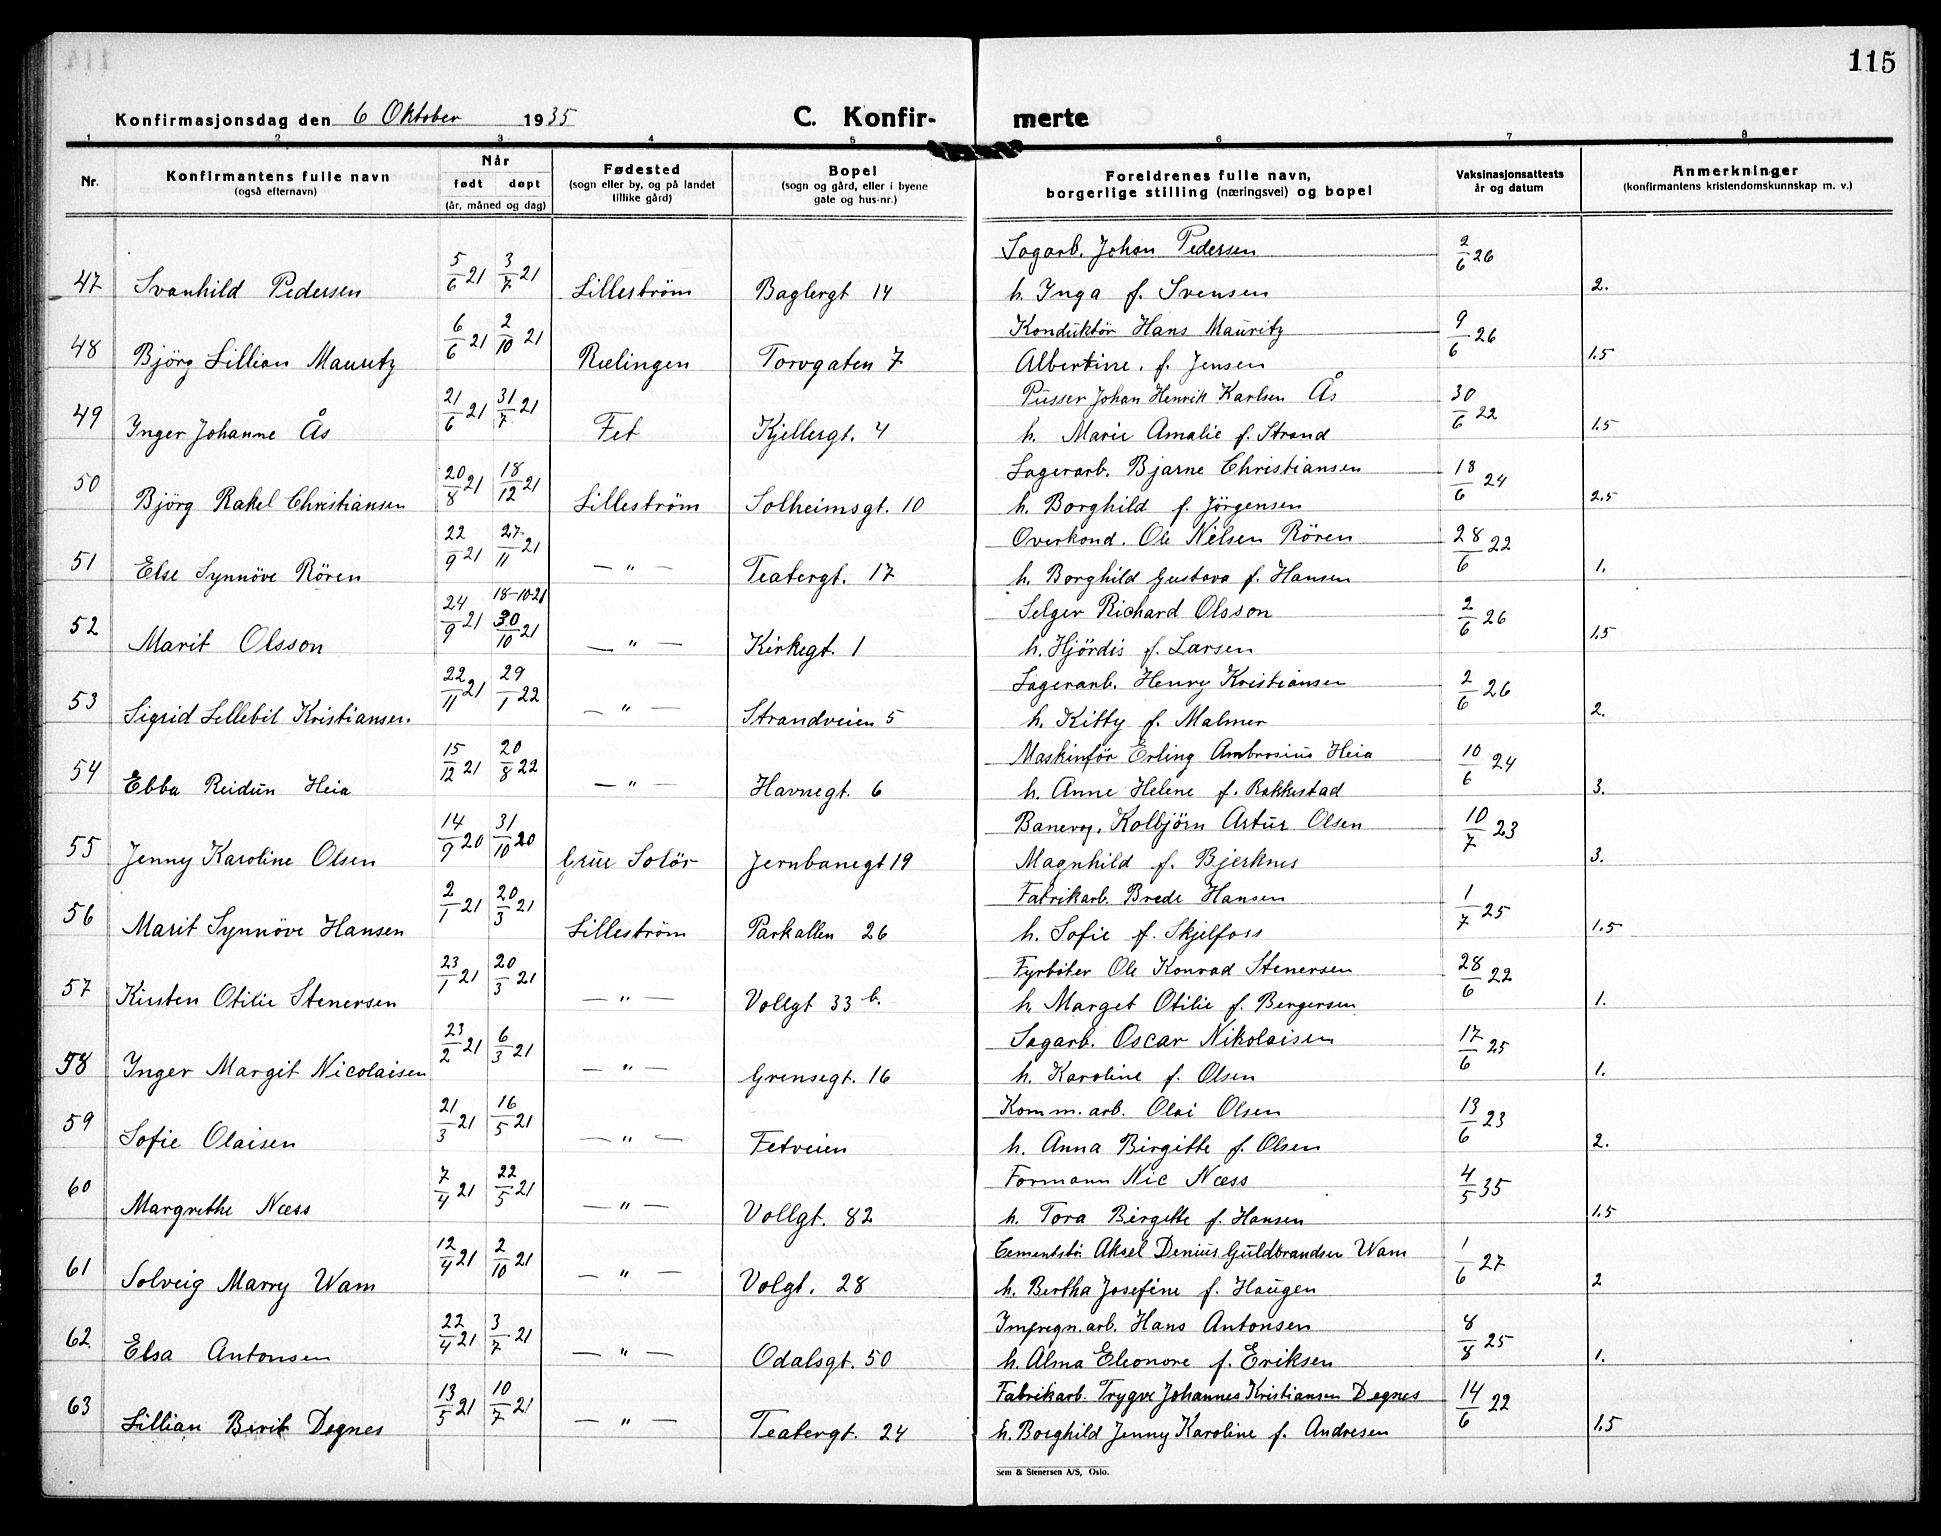 115
Konfirmasjonsdag den 6 Oktober 1935 C. Konfir- merte
1 2 3 4 5 6 7 8
Nr. Konfirmantens fulle navn (også efternavn) Når født døpt (år, måned og dag) Fødested (sogn eller by, og på landet tillike gård) Bopel (sogn og gård, eller i byene gate og hus-nr.) Foreldrenes fulle navn, borgerlige stilling (næringsvei) og bopel Vaksinasjonsattests år og datum Anmerkninger (konfirmantens kristendomskunnskap m. v.)
Sagarb. Johan Pedersen
47 Svanhild Pedersen 5/6 21 3/7 21 Lilleström Baglergt 14 h. Inga f. Svensen 2/6 26 2.
Konduktör Hans Mauritz
48 Björg Lillian Mauritz 6/6 21 2/10 21 Rælingen Torvgaten 7 Albertine. f. Jensen 9/6 26 1.5
Pusser Johan Henrik Karlsen Ås
49 Inger Johanne Ås 21/6 21 31/7 21 Fet Kjellergt. 4 h. Marie Amalie f. Strand 30/6 22 1.5
Lagerarb. Bjarne Christiansen
50 Björg Rakel Christiansen 20/8 21 18/12 21 Lilleström Solheimsgt. 10 h. Borghild f. Jörgensen 18/6 24 2.5
Overkond. Ole Nilsen Rören
51 Else Synnöve Rören 22/9 21 27/11 21 — " — Teatergt. 17 h. Borghild Gustava f. Hansen 28/6 22 1.
18-10-21 Selger Richard Olsson
52 Marit Olsson 24/9 21 30/10 21 — " — Kirkegt. 1 h. Hjördis f. Larsen 2/6 26 1.5
Lagerarb. Henry Kristiansen
53 Sigrid Lillebil Kristiansen. 22/11 21 29/1 22 — " — Strandveien 5 h. Kitty f. Malmer 2/6 26 2.
Maskinför Erling Ambrosius Heia
54 Ebba Reidun Heia 15/12 21 20/8 22 — " — Havnegt. 6 h. Anne Helene f. Rakkestad 10/6 24 3.
Banevog. Kolbjörn Artur Olsen
55 Jenny Karoline Olsen 14/9 20 31/10 20 Grue Solör Jernbanegt 19 Magnhild f. Bjerknes 10/7 23 3.
Fabrikarb. Brede Hansen
56 Marit Synnöve Hansen 2/1 21 20/3 21 Lilleström Parkallen 26 h. Sofie f. Skjelfoss 1/7 25 1.5
Fyrböter Ole Konrad Stenersen
57 Kirsten Otilie Stenersen 23/1 21 20/3 21 — " — Vollgt 33 b. h. Marget Otilie f. Bergersen 28/6 22 1.
Sagarb. Oscar Nikolaisen
58 Inger Margit Nicolaisen 23/2 21 6/3 21 — " — Grensegt. 16 h. Karoline f. Olsen 17/6 25 1.
Komm. arb. Olai Olsen
59 Sofie Olaisen 21/3 21 16/5 21 — " — Fetveien h. Anna Birgitte f. Olsen 13/6 23 2.
Formann Nic Næss
60 Margrethe Næss 7/4 21 22/5 21 — " — Vollgt. 82 h. Tora Birgitte f. Hansen 4/5 35 1.5
Cementstö. Aksel Denius Guldbrandsen Wam
61 Solveig Marry Wam 12/4 21 2/10 21 — " — Volgt. 28 h. Bertha Josefine f. Haugen 1/6 27 2
Impregn. arb. Hans Antonsen
62. Elsa Antonsen 22/4 21 3/7 21 — " — Odalsgt. 50 h. Alma Eleonore f. Eriksen 8/8 25 1.
Fabrikarb. Trygve Johannes Kristiansen Degnes
63 Lillian Berit Degnes 13/5 21 10/7 21 — " — Teatergt. 24 h. Borghild Jenny Karoline f. Andresen 14/6 22 1.5
Sem & Stenersen A/S, Oslo.